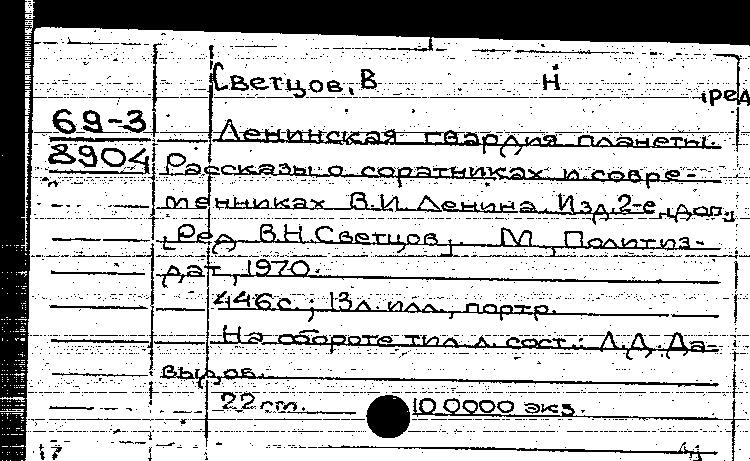 Светцов, В Н
, ред
69-3 Ленинская гвардия планеты.
8904 Рассказы о соратниках и совре-
менниках В.И. Ленина. Изд. 2-е, доп.
[Ред В.Н. Светцов]. М, Политиз-
дат, 1970.
446 с.; 13 л. илл., портр.
На обороте тит. л. сост.: Л.Д. Да-
выдов.
22 см. 100000 экз.
17